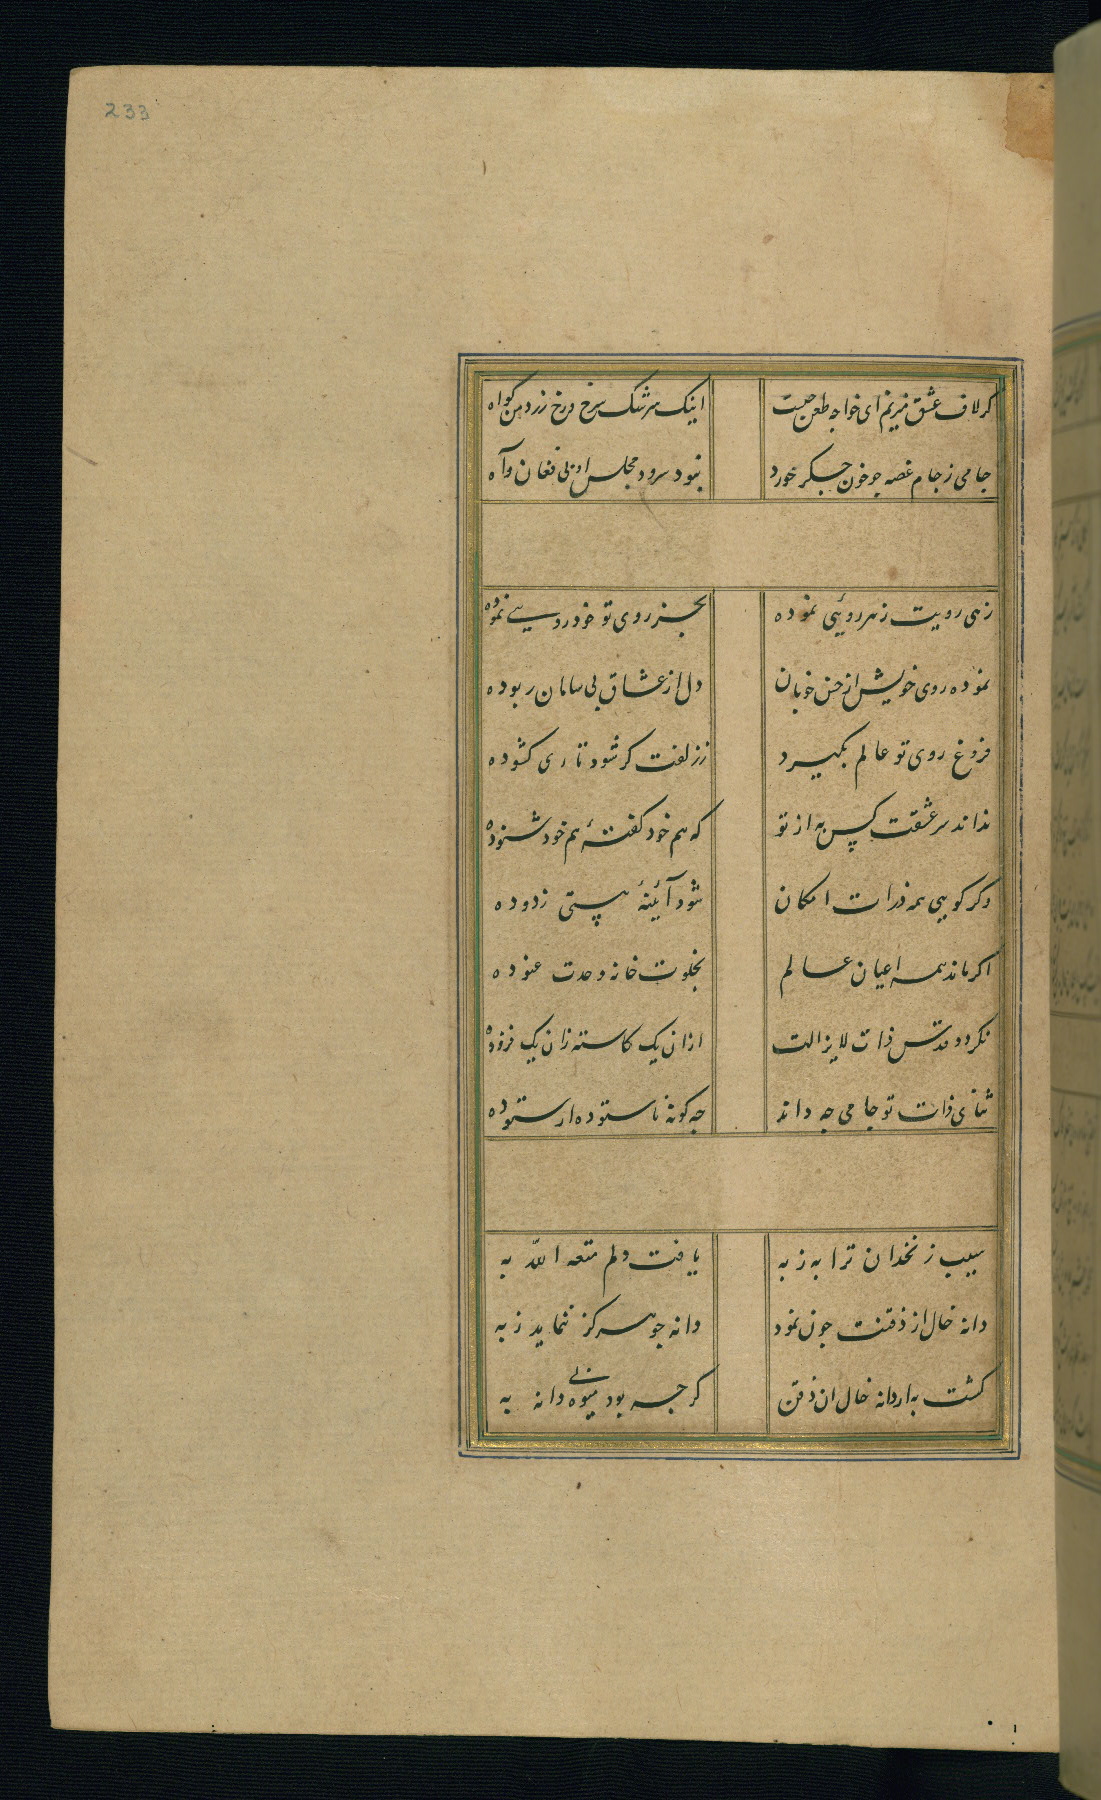 233
کر لاف عشق میزنم ای خواجه طعن چیست اینک سرشک سرخ و رخ زرد من کواه
جامی ز جام غصه چو خون جکر خورد نبود سرود مجلس او بی فغان و آه
زهی رویت ز هر روئیی نموده بجز روی تو خود رویی نموده
نموده روی خویش از حسن خوبان دل از عشاق بی سامان ربوده
فروغ روی تو عالم بکیرد ز زلفت کر شود تاری کشوده
نداند سر عشقت کس به از تو که هم خود کفتهٔ هم خود شنوده
وکر کوییی همه ذرات امکان شود آئینهٔ هستی زدوده
اکر ماند همه اعیان عالم بخلوت خانه وحدت غنوده
نکردد قدس ذات لایزالت ازان یک کاسته زان یک فزوده
ثنای ذات تو جامی جه داند جه کونه ناستوده ار ستوده
سیب زنخدان ترا به ز به یافت دلم متعه الله به
دانه خال از ذقنت جون نمود دانه جو هرکز ننماید ز به
کشت به از دانه خال ان ذقن کرجه بود میوه بی دانه به